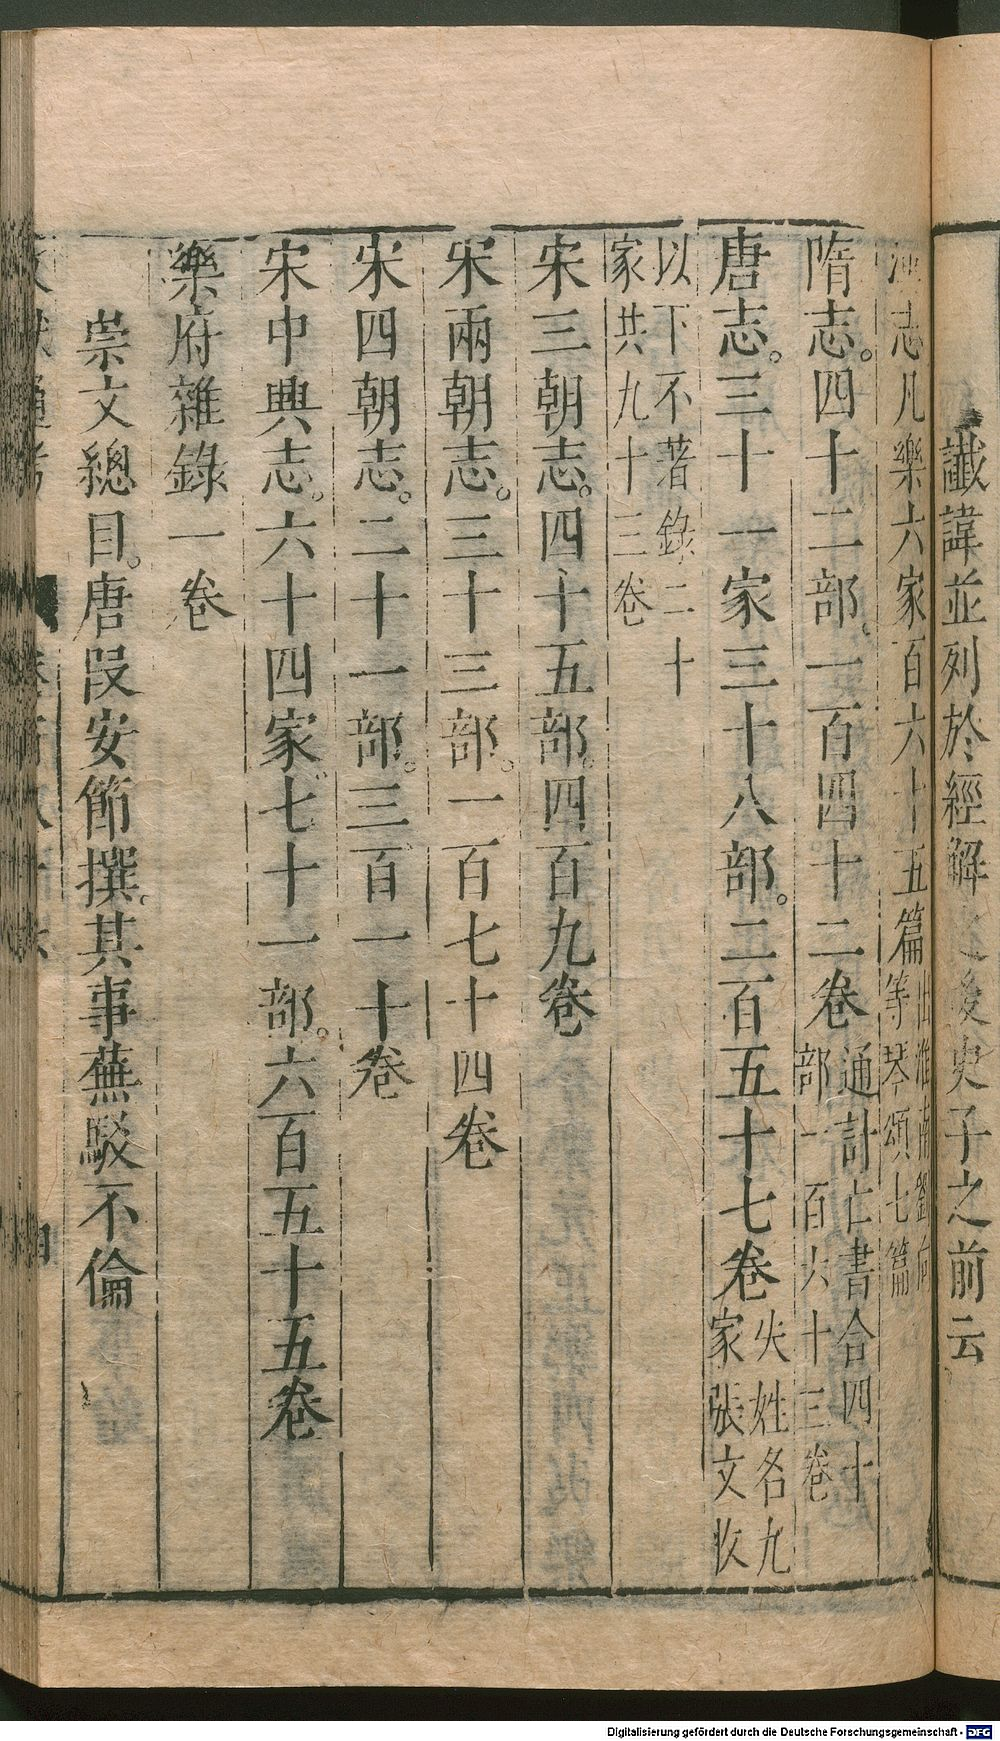 讖諱並列於經解之後史子之前云
漢志凡樂六家百六十五篇出淮南劉向等琴頌七篇
隋志。四十二部。一百四十二卷通計亡書合四十部一百六十三卷
唐志。三十一家三十八部。二百五十七卷失姓名九家張文收
以下不著錄二十家共九十三卷
宋三朝志。四十五部。四百九卷
宋兩朝志。三十三部。一百七十四卷
宋四朝志。二十一部。三百一十卷
宋中興志。六十四家七十一部。六百五十五卷
樂府雜錄一卷
崇文總目。唐段安節撰。其事蕪駁不倫
Digitalisierung gefördert durch die Deutsche Forschungsgemeinschaft - DFG